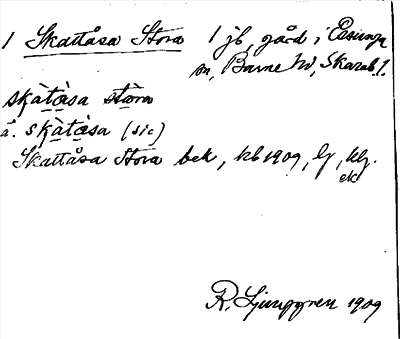 1 Skattåsa Stora 1 jb, gård i Essunga
sn, Barne hd, Skarab. l.
skàtàsa stòra
å. skàtàsa (sic)
Skattåsa Stora bek, kb 1909, lj, klj.
ek
R. Ljunggren 1909